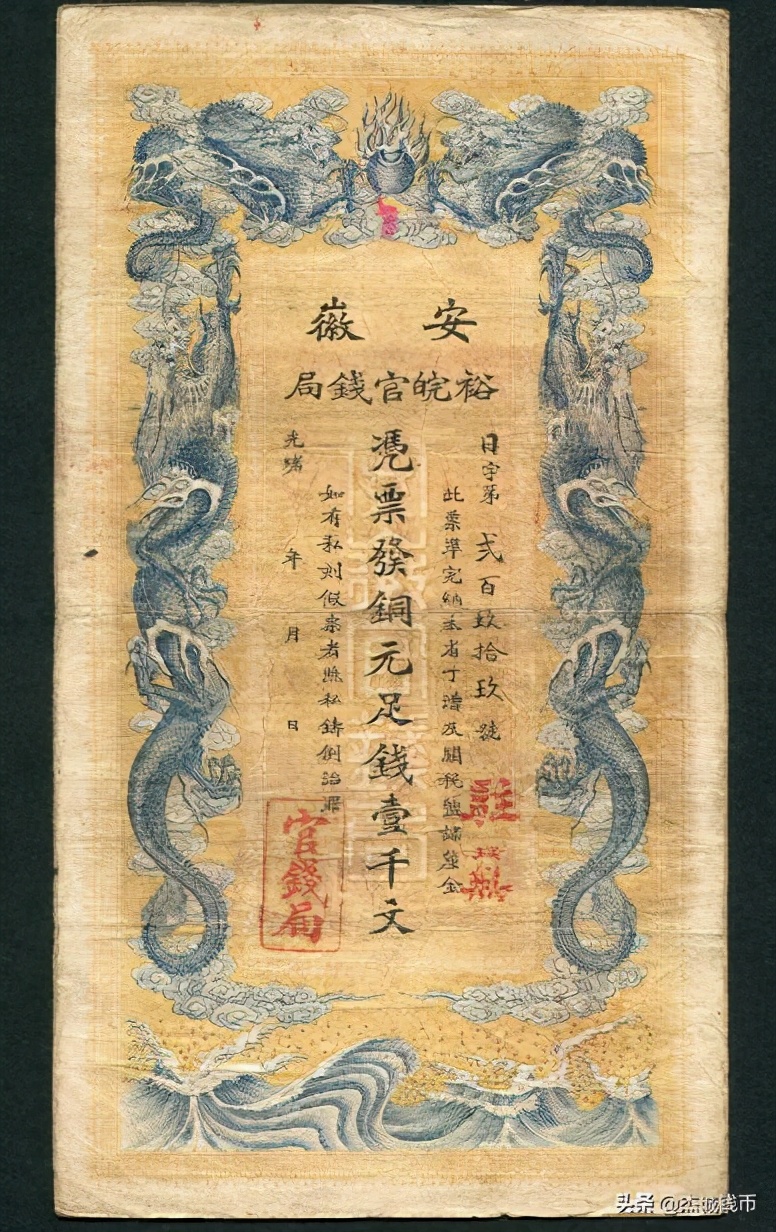 安徽
裕皖官錢局
日字第貳百玖拾玖號
此票準完納本省丁漕及關稅鹽課釐金
憑票發銅元足錢壹千文
如有私刻假票者照私鑄例治罪
光緒 年 月 日
官錢局
头条 @杰城钱币